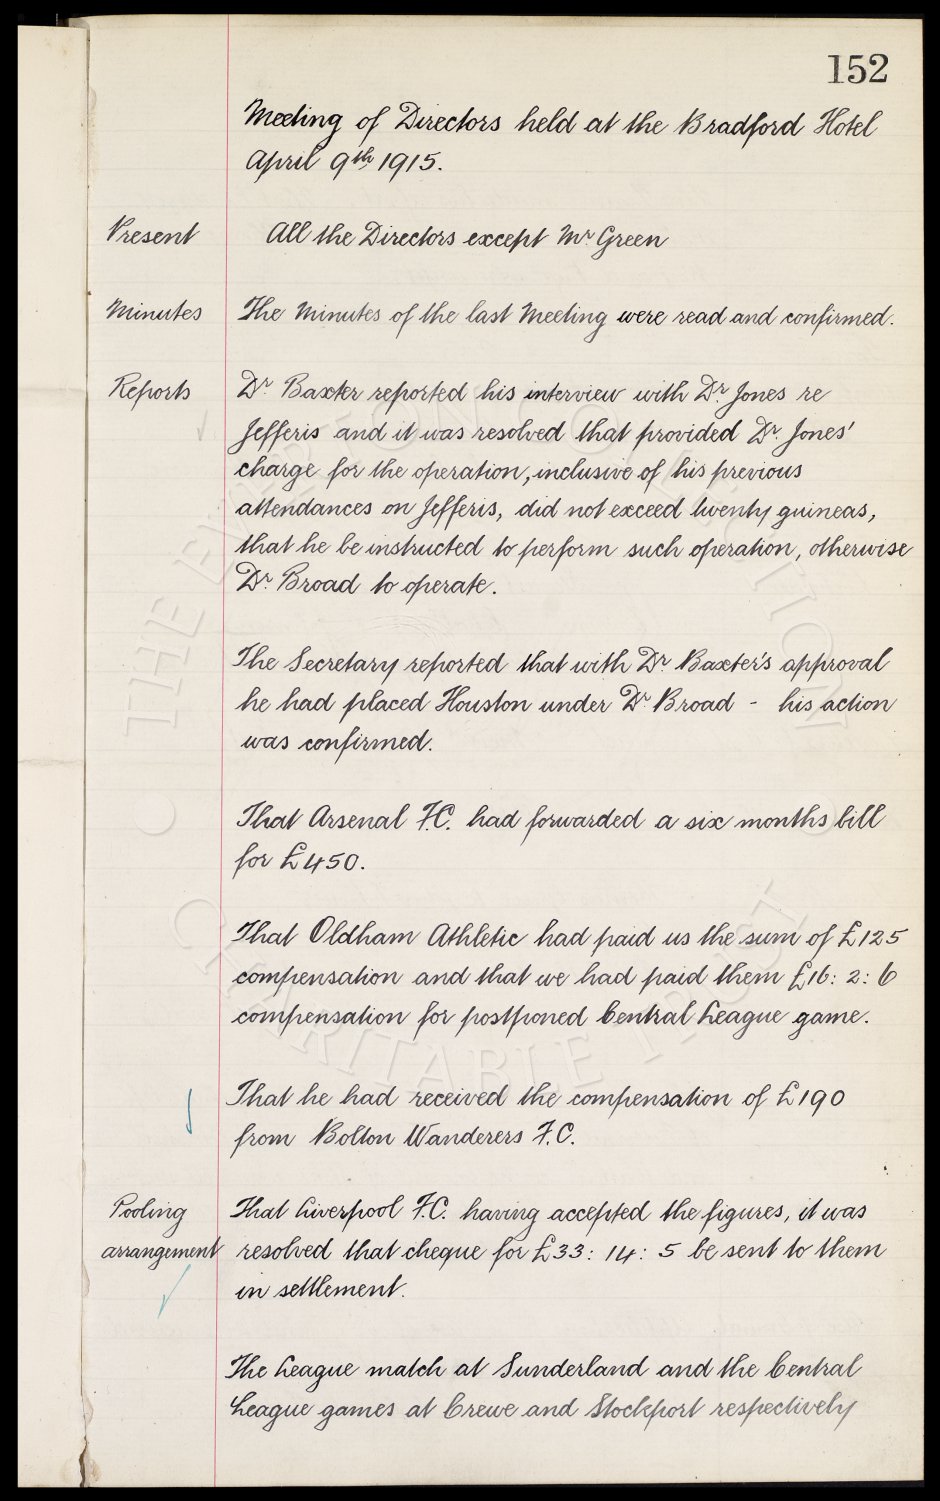 152
Meeting of Directors held at the Bradford Hotel
April 9th 1915.
Present All the Directors except Mr Green
Minutes The Minutes of the last Meeting were read and confirmed.
Reports Dr Baxter reported his interview with Dr. Jones re
Jefferis and it was resolved that provided Dr. Jones'
charge for the operation, inclusive of his previous
attendances on Jefferis, did not exceed twenty guineas,
that he be instructed to perform such operation, otherwise
Dr. Broad to operate.
The Secretary reported that with Dr Baxter's approval
he had placed Houston under Dr Broad - his action
was confirmed.
That Arsenal F.C. had forwarded a six months bill
for £450.
That Oldham Athletic had paid us the sum of £125
compensation and that we had paid them £16: 2: 6
compensation for postponed Central League game.
That he had received the compensation of £190
from Bolton Wanderers F.C.
Pooling That Liverpool F.C. having accepted the figures, it was
arrangement resolved that cheque for £33: 14: 5 be sent to them
in settlement.
The League match at Sunderland and the Central
League games at Crewe and Stockport respectively
THE EVERTON COLLECTION
CHARITABLE TRUST